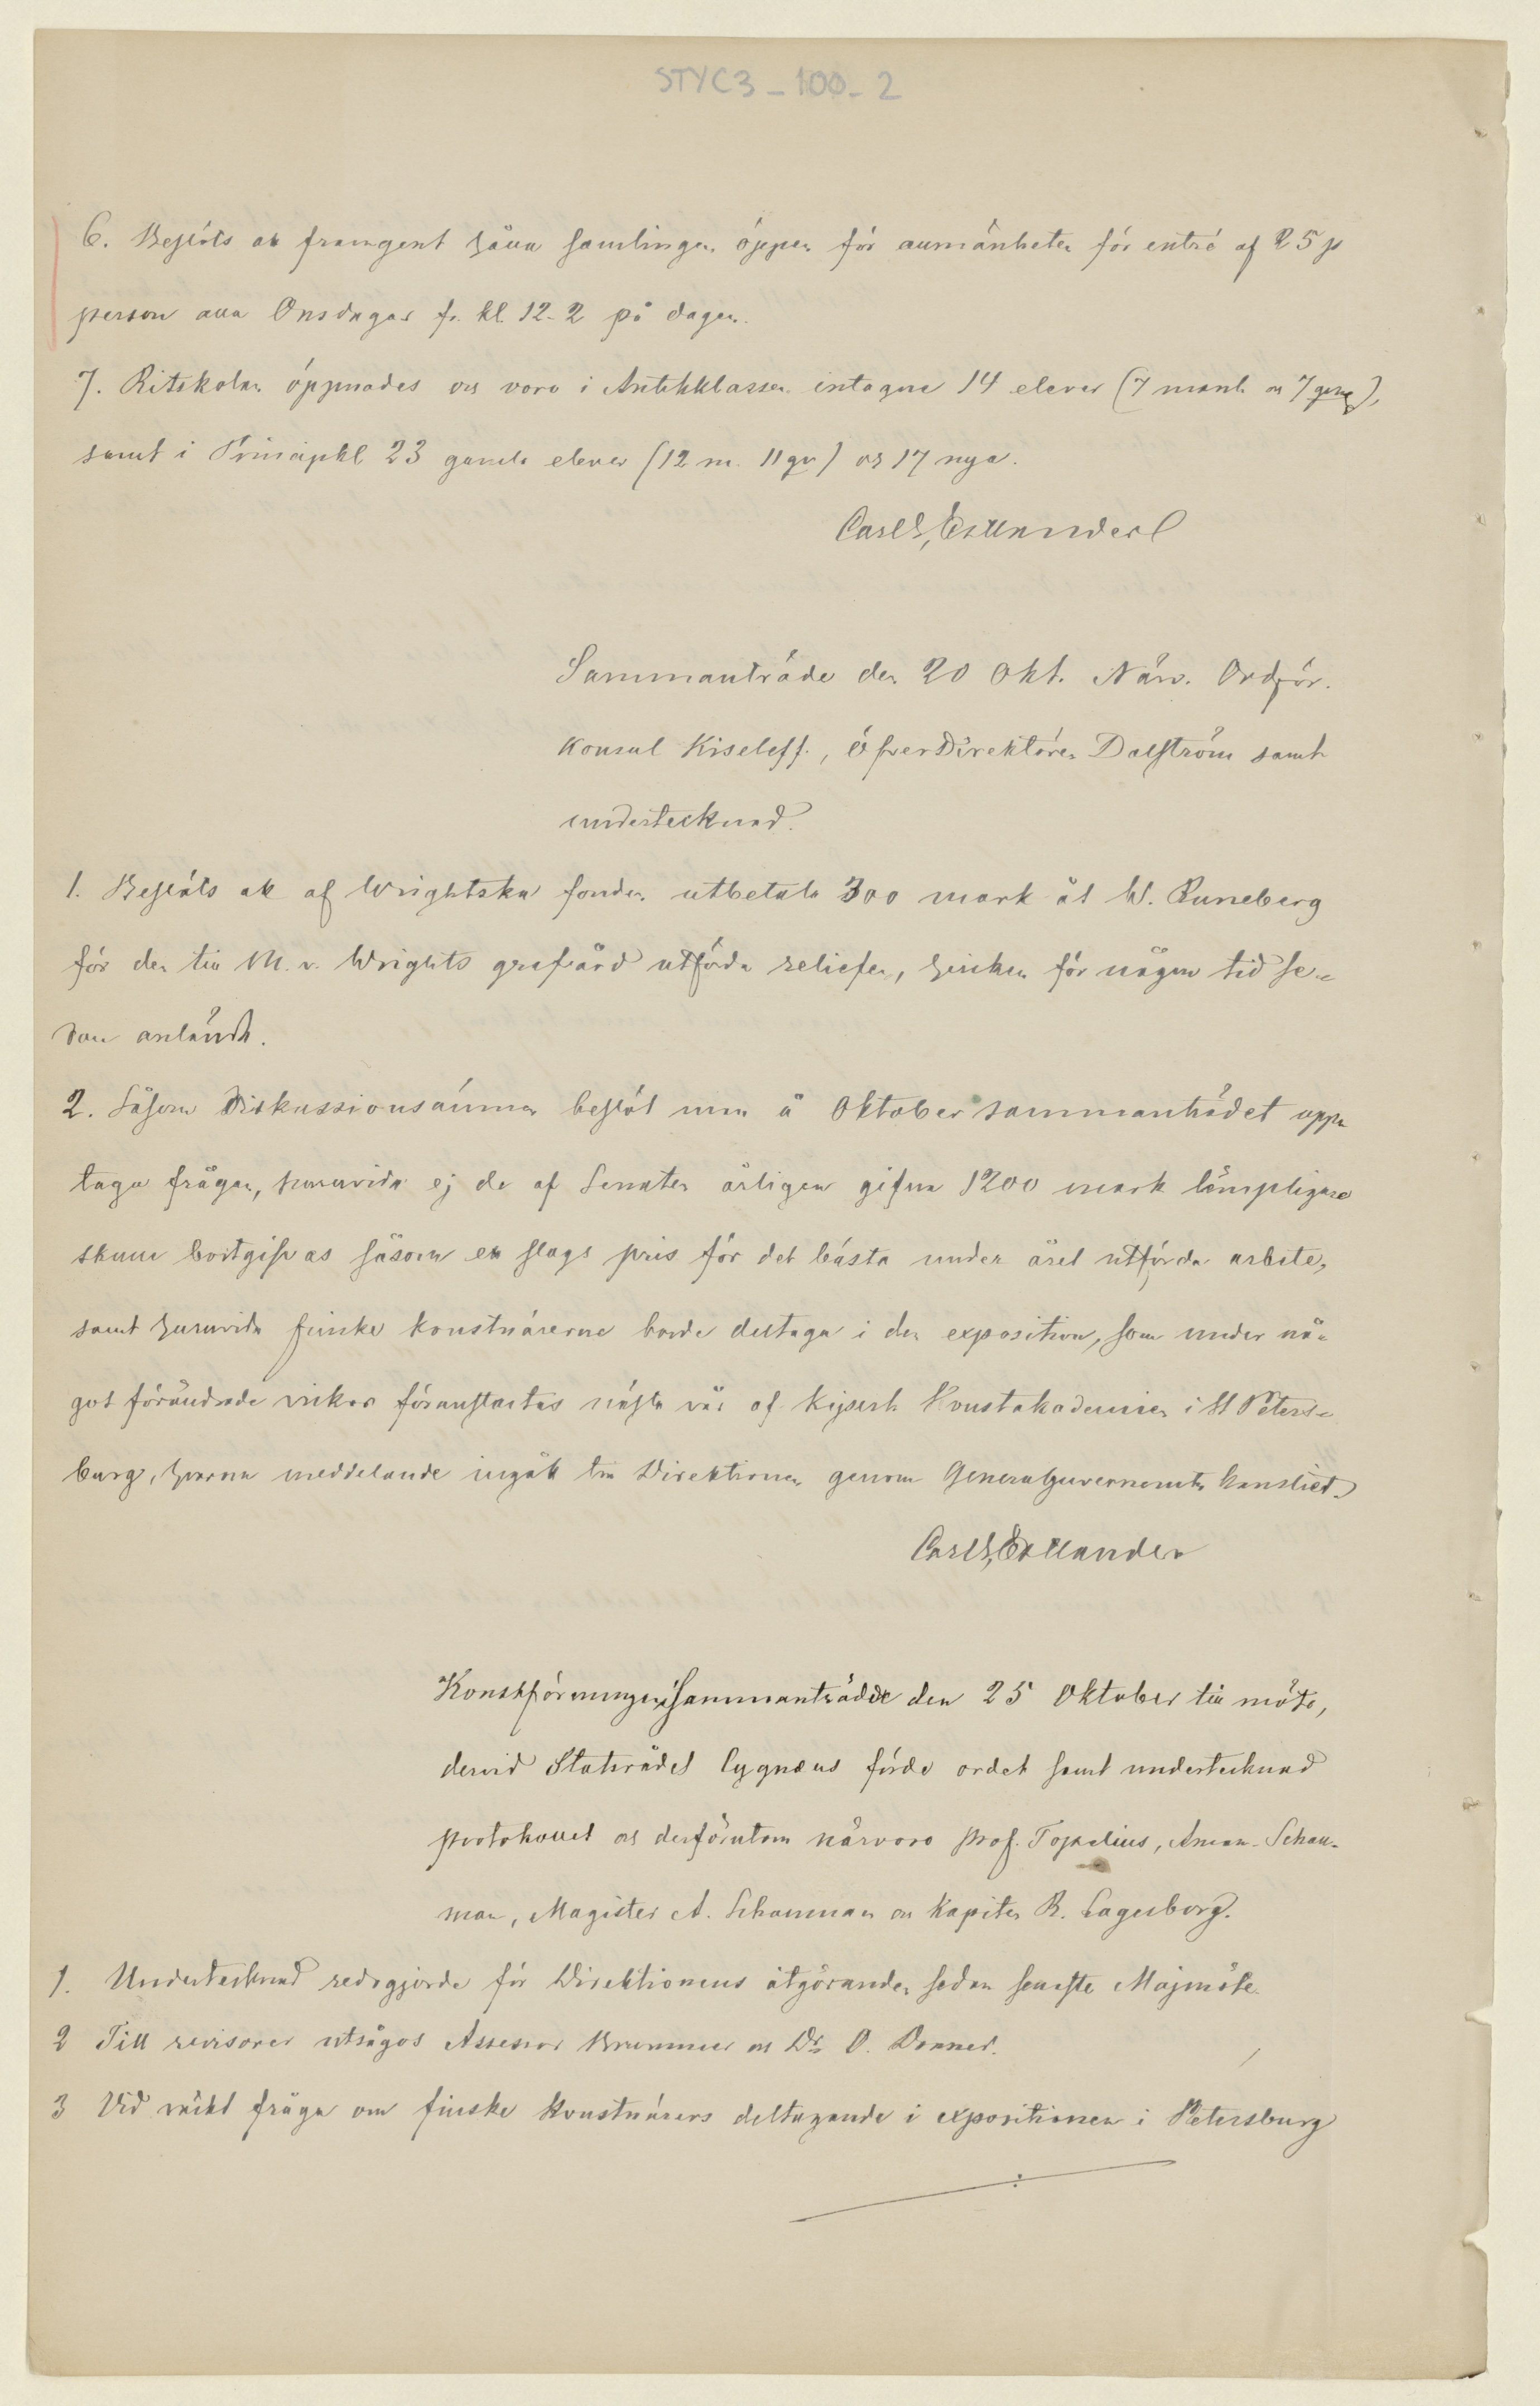 STYC3 - 100 - 2
6. Beslöts att framgent hålla samlingen öppen för allmänheten för entré af 25 p
person alla Onsdagar fr. kl. 12-2 på dagen.
7. Ritskolan öppnades och voro i Antikklassen intagne 14 elever (7 manl. och 7 qvinl),
samt i Principkl 23 gamla elever (12 m. 11 qv) och 17 nya.
Carl G. Estlander
Sammanträde den 20 Okt. Närv. Ordför.
Konsul Kiseleff, öfverDirektören Dalström samt
undertecknad.
1. Beslöts att af Wrightska fonden utbetala 300 mark åt W. Runeberg
för den till M. v. Wrights grafvård utförda reliefen, hvilken för någon tid se-
dan anländt.
2. Såsom Diskussionsämnen beslöt man å Oktober sammanträdet upp-
taga frågan, huruvida ej de af Senaten årligen gifna 1200 mark lämpligare
skulle bortgifvas såsom ett slags pris för det bästa under året utförda arbete,
samt huruvida finske konstnärerne borde deltaga i den exposition, som under nå-
got förändrade vilkor föranstaltas nästa vår af Kejserl. Konstakademien i St Peters-
burg, hvarom meddelande ingått till Direktionen genom Generalguvernörs kansliet.
Carl G. Estlander
Konstföreningen Sammanträdde den 25 Oktober till möte,
dervid Statsrådet Cygnæus förde ordet samt undertecknad
protokollet och derförutom närvoro Prof. Topelius, Aman. Schau-
man, Magister A. Schauman och Kapiten R. Lagerborg.
1. Undertecknad redogjorde för Direktionens åtgöranden sedan senaste Majmöte.
2 Till revisorer utsågos Assessor Brummer och Dr. O. Donner.
3 Vid väckt fråga om finske konstnärers deltagande i expositionen i Petersburg